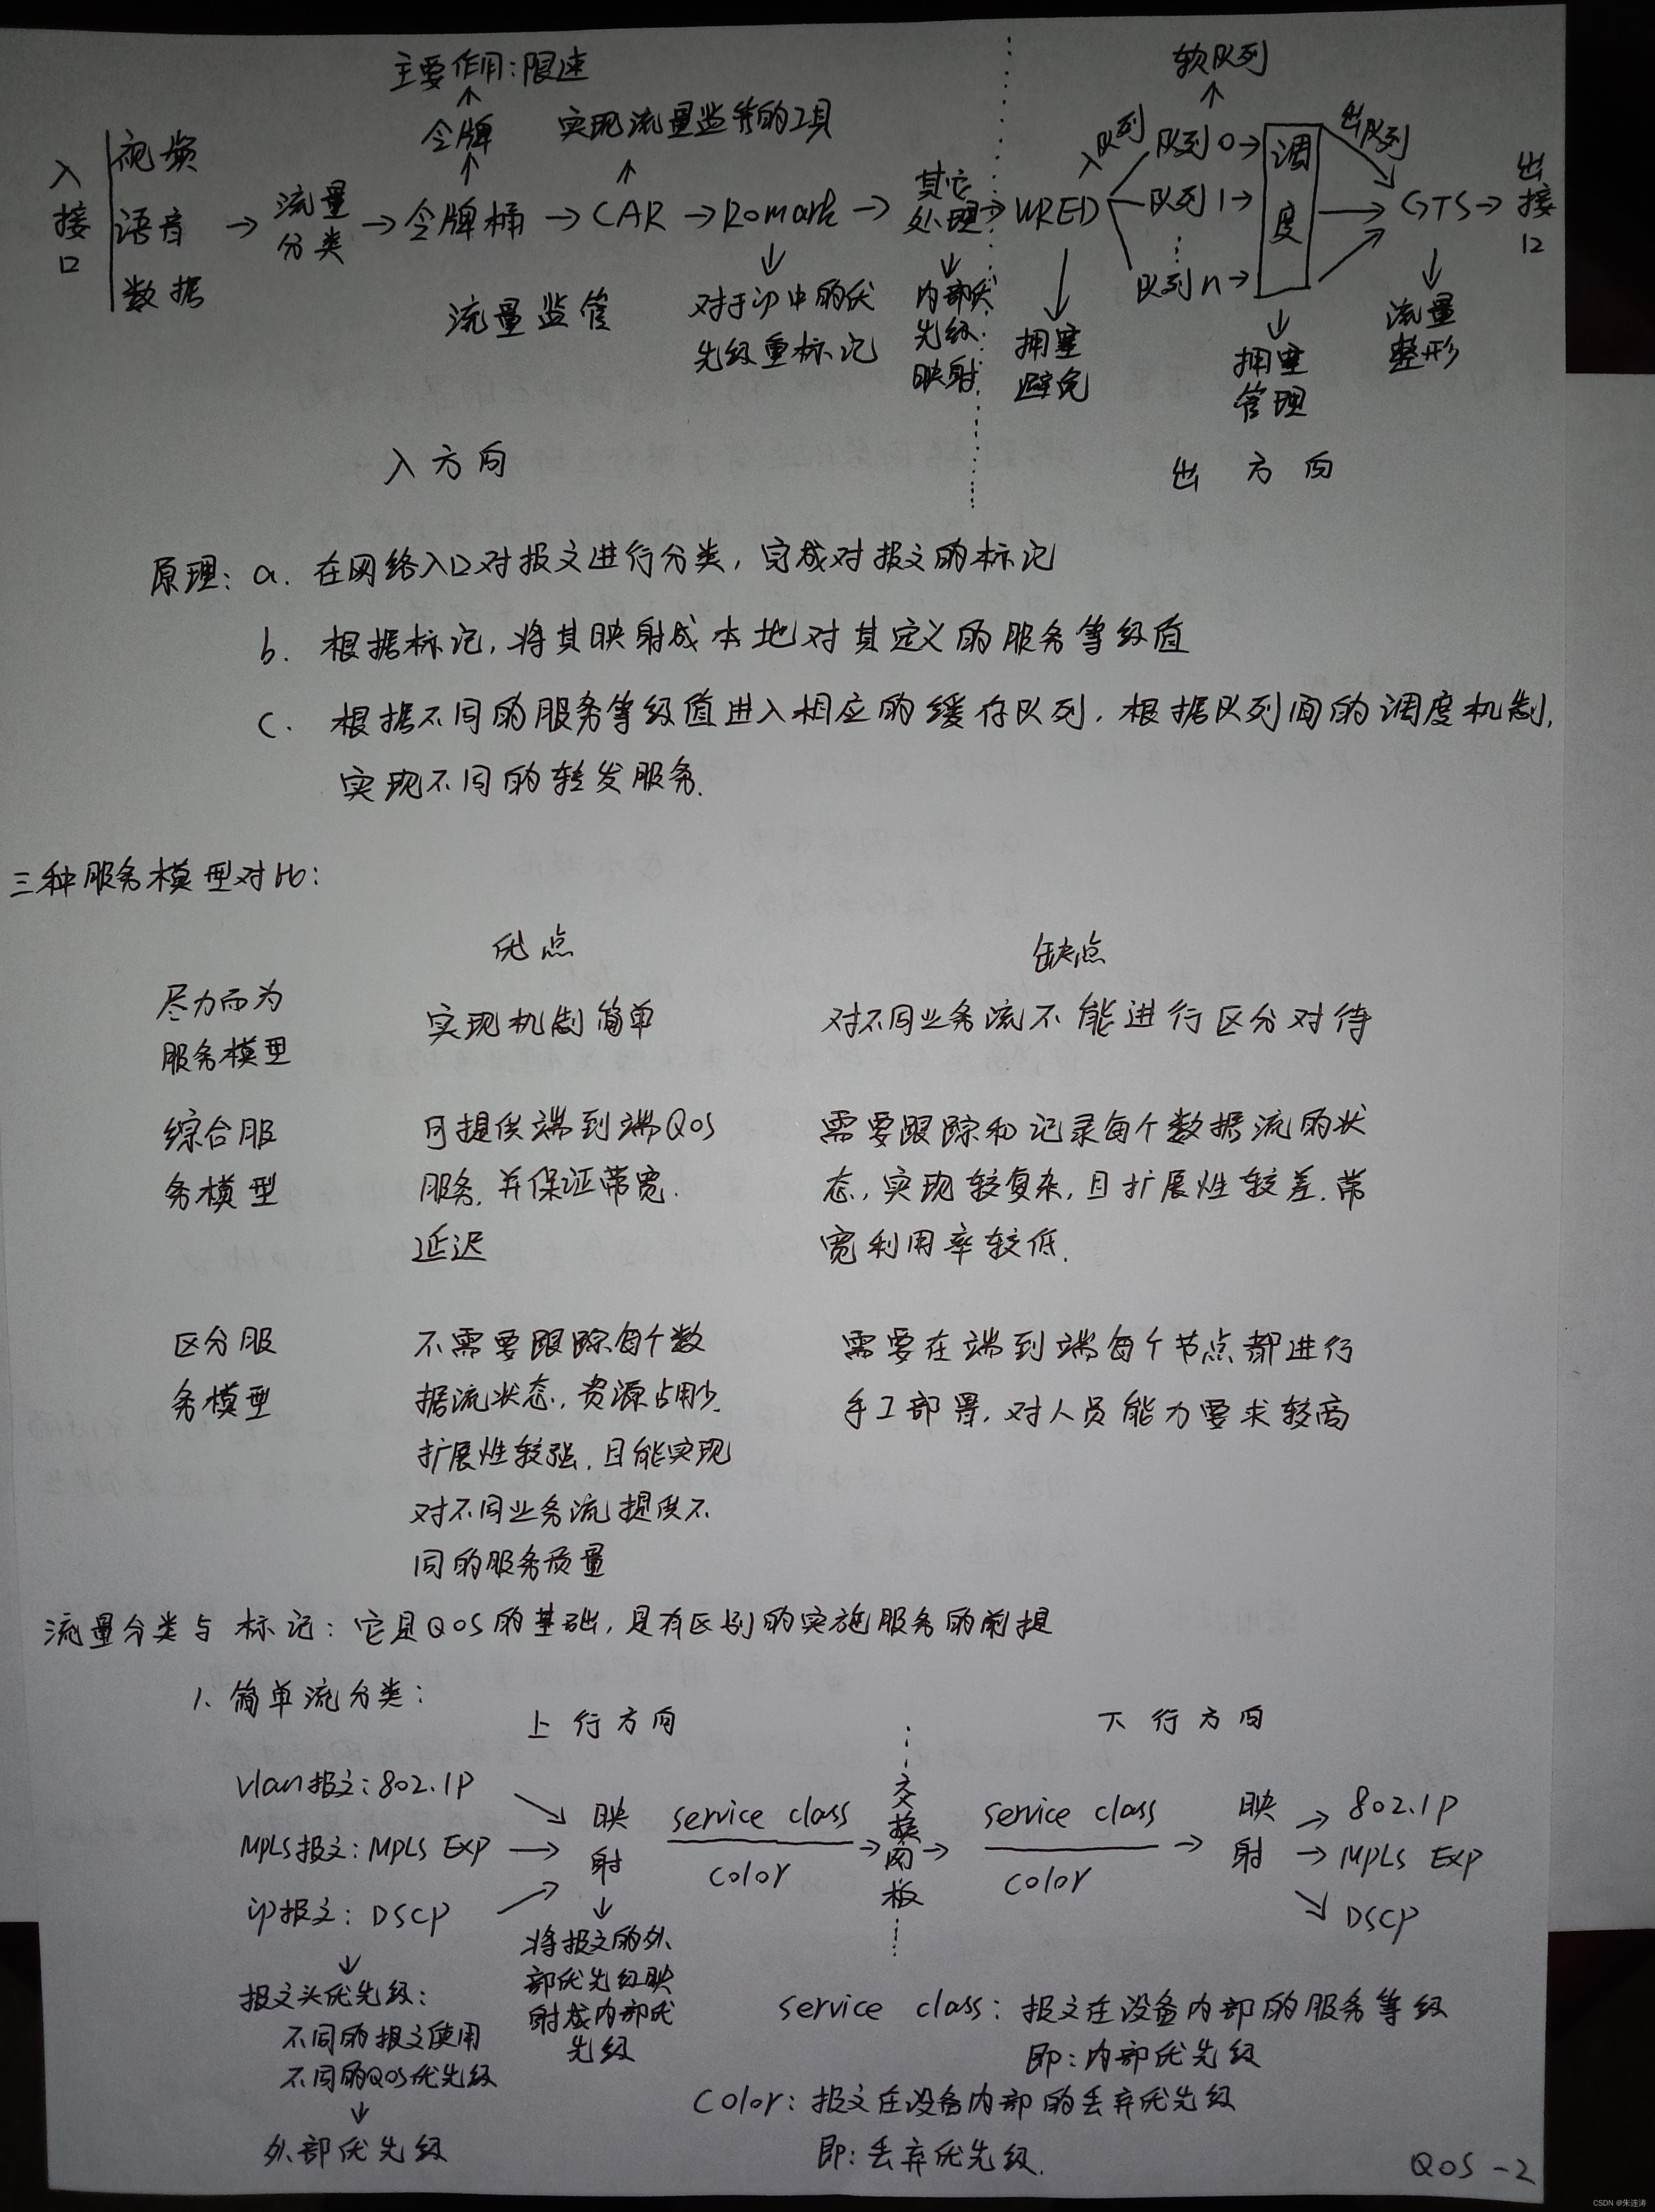 主要作用：限速
软队列
令牌 实现流量监管的工具
入接口
视频
语音
数据
→ 流量分类 → 令牌桶 → CAR → Romark → 其它处理 → WRED
入队列
队列0→
队列1→
队列n→
调度
出队列
GTS→ 出接口
流量监管
对于ip中的优
先级重标记
内部优
先级:
映射
拥塞
避免
拥塞
管理
流量
整形
入方向
出方向
原理：a. 在网络入口对报文进行分类，完成对报文的标记
b. 根据标记，将其映射成本地对其定义的服务等级值
c. 根据不同的服务等级值进入相应的缓存队列，根据队列间的调度机制，
实现不同的转发服务.
三种服务模型对比：
优点 缺点
尽力而为
服务模型
实现机制简单
对不同业务流不能进行区分对待
综合服
务模型
可提供端到端QOS
服务，并保证带宽.
延迟
需要跟踪和记录每个数据流的状
态，实现较复杂，且扩展性较差，带
宽利用率较低.
区分服
务模型
不需要跟踪每个数
据流状态，资源占用少.
扩展性较强，且能实现
对不同业务流提供不
同的服务质量
需要在端到端每个节点都进行
手工部署，对人员能力要求较高
流量分类与标记：它是QOS的基础，是有区别的实施服务的前提
1、简单流分类：
上行方向 下行方向
vlan报文：802.1P
MPLS报文：MPLS EXP
ip报文：DSCP
映射
service class
color
交换网板
service class
color
映射
802.1P
MPLS EXP
DSCP
将报文的外
部优先级映
射成内部优
先级
报文头优先级：
不同的报文使用
不同的QOS优先级
外部优先级
service class：报文在设备内部的服务等级
即：内部优先级
Color：报文在设备内部的丢弃优先级
即：丢弃优先级.
QOS-2
CSDN @朱连涛